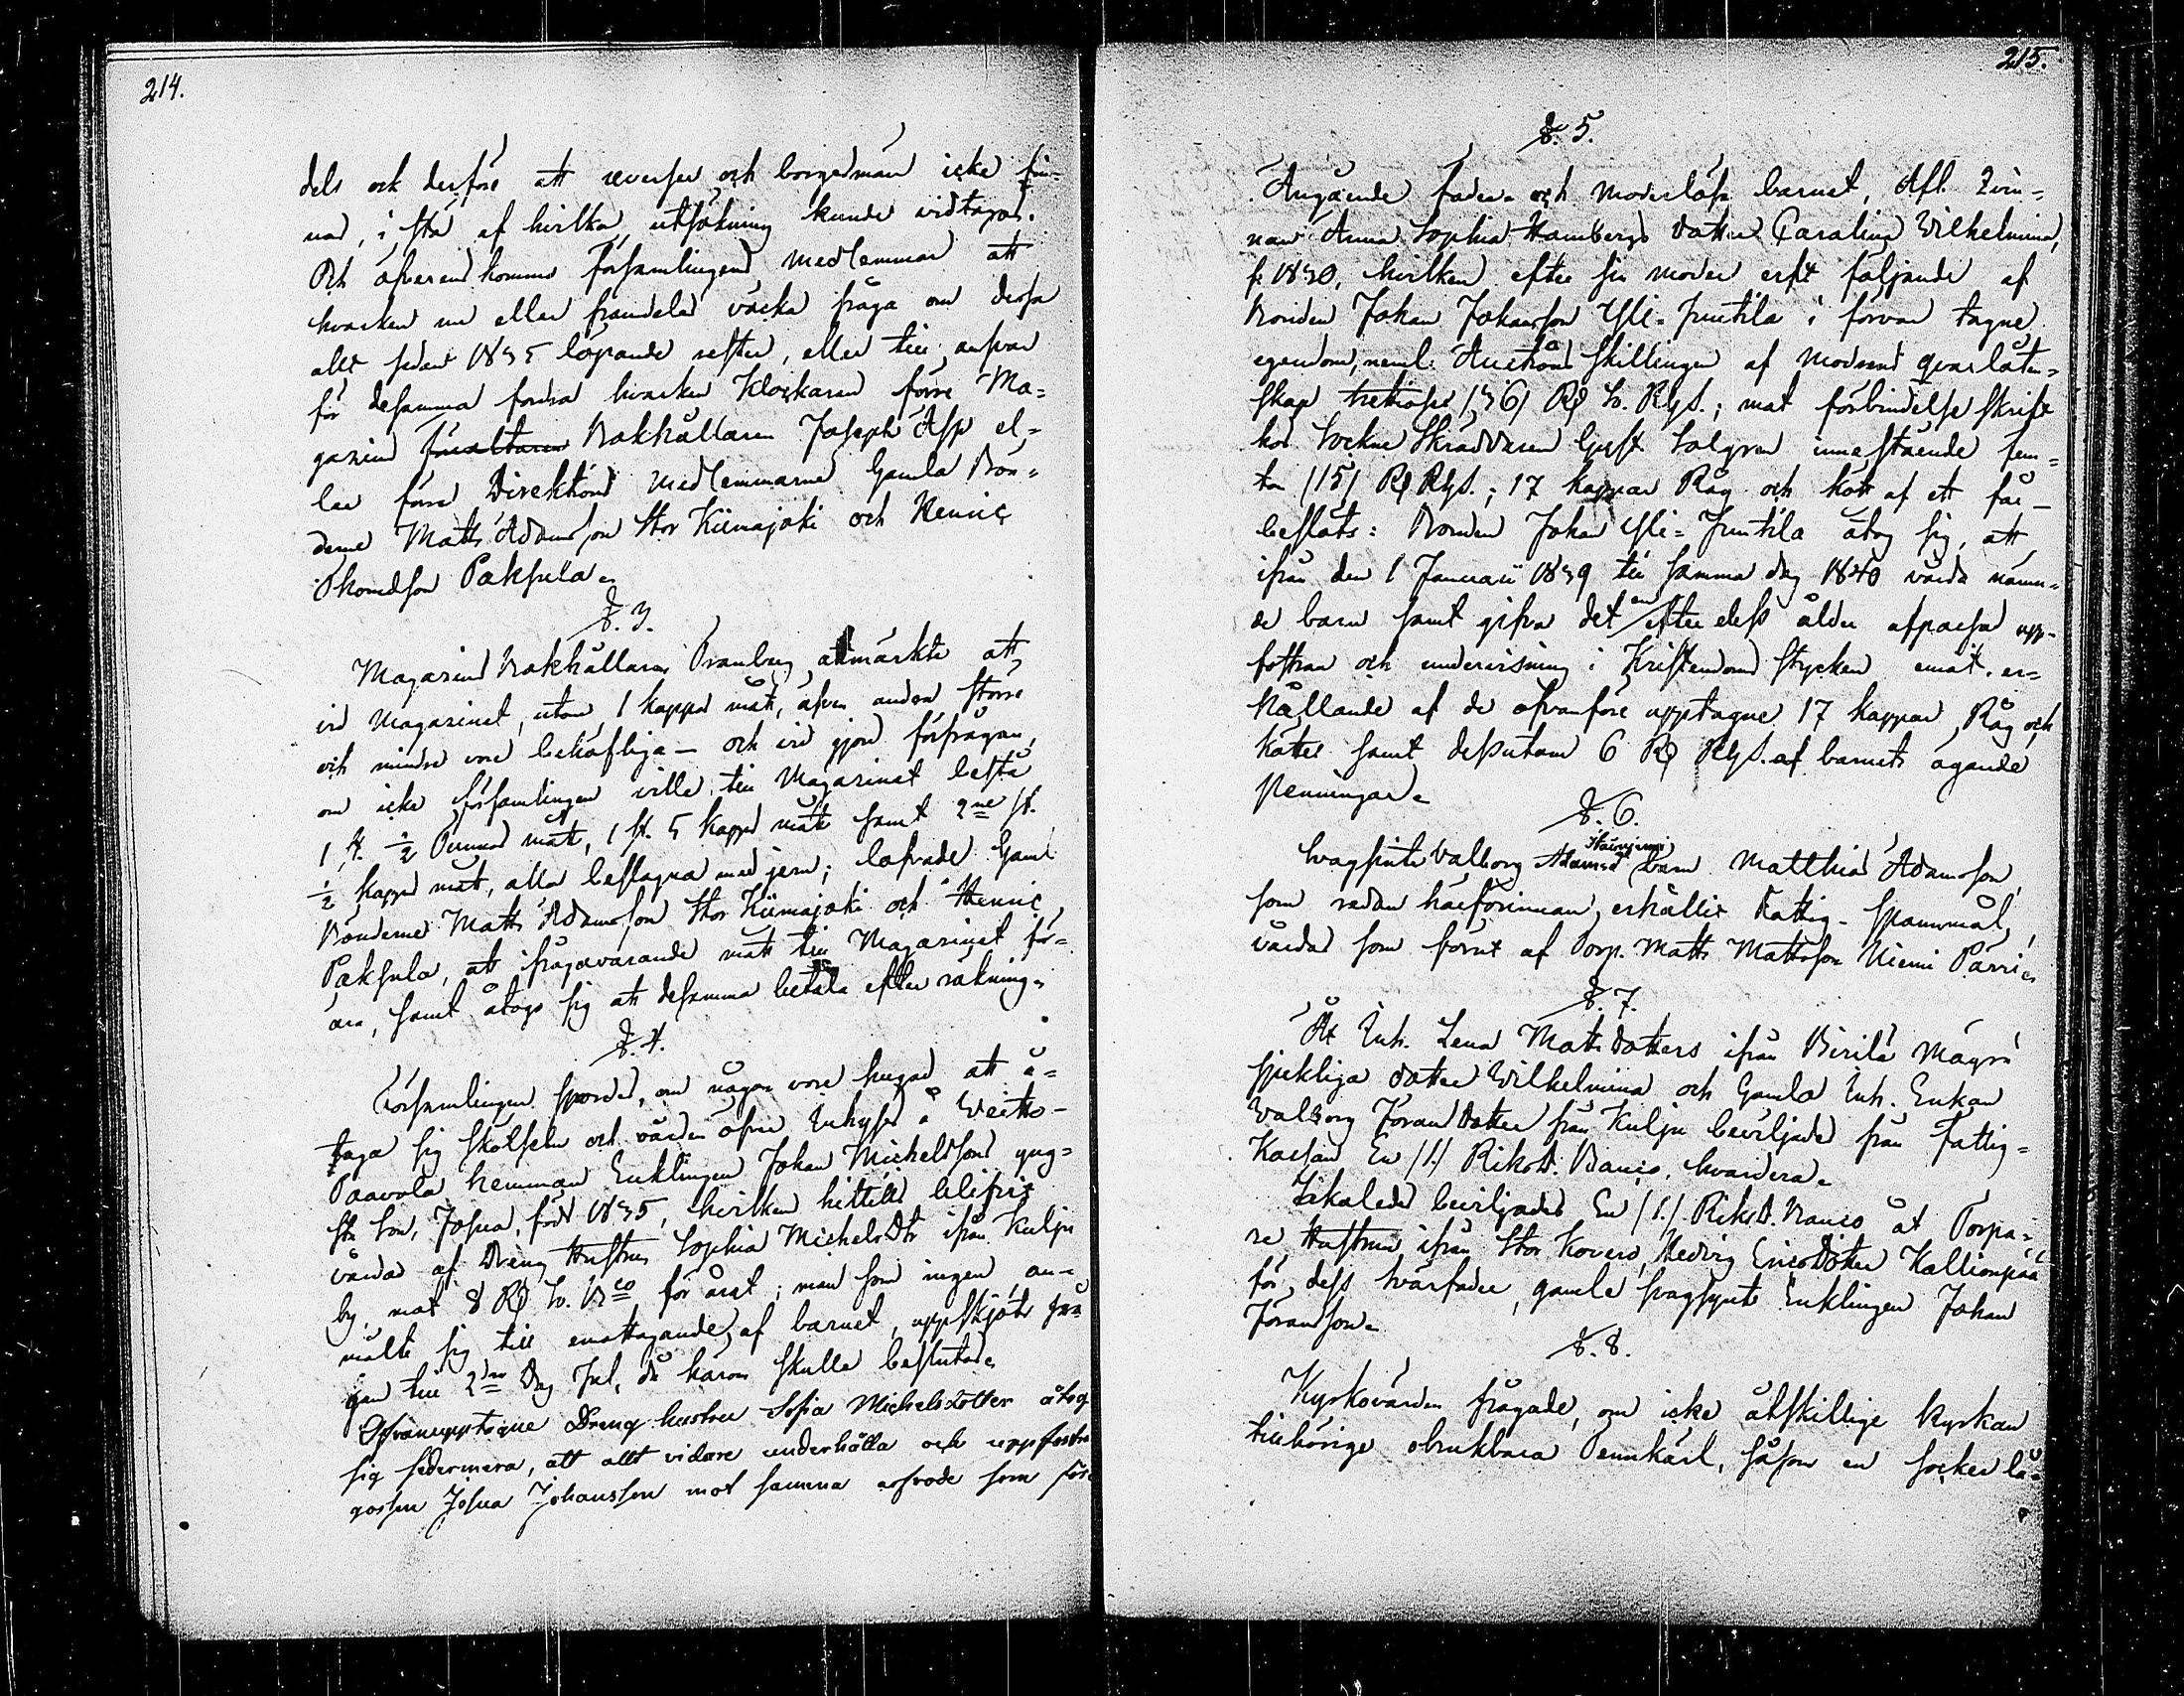 214.
dels ock derföre att reverser och borgesmän icke fin-
nas, i stöd af hvilka utsökning kunde vidtagas.
Och öfverens kommo Församlingens medlemmar att
hvarken nu eller framdeles väcka fråga om dessa
allt sedan 1835 löpande rester, eller till ansvar
för desamma fordra hvarken Klockaren förre Ma-
gazins Bokhållaren Joseph Asp el-
ler förre Direktions medlemmarne Gamla Bön-
derne Matts Adamsson Stor Kiimajoki och Henric
Thomasson Paksula.
§. 3.
Magazins Bokhållaren Tranberg anmärkte att
vid Magazinet, utom 1 kappes mått, äfven andra större
och mindre vore behöfliga – och vid gjord förfrågan,
om icke församlingen ville till Magazinet bestå
1 st. ½ Tunnas mått, 1 st. 5 kappes mått samt 2ne st.
½ kappes mått, alla beslagna med jern; lofvade Gamle
Bönderne Matts Adamsson Stor Kiimajoki och Henric
Paksula, att ifrågavarande mått till Magazinet för-
ära, samt åtogo sig att desamma betala efter räkning.
§. 4.
Församlingen spordes, om någon vore hugad att å-
taga sig skötseln och vården öfver Inhyses å Weitto-
Paavola hemman Enklingen Johan Michelssons yng-
sta Son, Josua, född 1835, hvilken hittills blifvit
vårdad af Dreng Hustrun Sophia Michelsdtr ifrån Kulju
by, mot 8 Rd Sv. Bco för året; men som ingen an-
mälte sig till emottagande af barnet, uppskjöts frå-
gan till 2dra Dag Jul, då härom skulle beslutas.
Ofvanupptagne Dreng hustru Sofia Michelsdotter åtog
sig sedermera, att allt vidare underhålla och uppfostra
gossen Josua Johansson mot samma arfvode som för
215.
§. 5.
Angående fader- och moderlösa barnet, Afl. Qvin-
nan Anna Sophia Hambergs dotter Carolina Wilhelmina,
f. 1830, hvilken efter sin moder erft följande af
Bonden Johan Johansson Yli-Juntila i förvar tagne
egendom, neml. Auctions skillingen af modrens qvarlåten-
skap trettiosex /36/ Rd Sv. Rgs.; mot förbindelse skrift
hos Sockne Skräddaren Gust. Salgren innestående fem-
ton /15/ Rd Rgs.; 17 kappar Råg och kött af ett får –
beslöts: Bonden Johan Yli-Juntila åtog sig, att
ifrån den 1 Januarii 1839 till samma dag 1840 vårda nämn-
de barn samt gifva det en efter dess ålder afpassad upp-
fostran och undervisning i Kristendoms stycken emot er-
hållande af de ofvanföre upptagne 17 kappar Råg och
köttet samt dessutom 6 Rd Rgs. af barnets ägande
penningar.
§. 6.
Svagsinte Valborg Adamsd barn Matthias Adamsson,
som redan härförinnan erhållit Fattig-Spannmål,
vårdas som förut af Torp. Matts Mattsson Niemi Parri.
§. 7.
Åt Inh. Lena Matts dotters ifrån Birilä Mågrn
sjukliga dotter Wilhelmina och Gamla Inh. Enkan
Valborg Jöransdotter från Kulju beviljades från Fattig-
Kassan En /1./ Riksd. Banco. hvardera.
Likaledes beviljades En /1./ Riksd. Banco åt Torpa-
re Hustrun ifrån Stor Kovero, Hedvig Ericsdotter Kallionpää
för dess Svärfader, gamle svagsynte Enklingen Johan
Jöransson.
§. 8.
Kyrkovärden frågade, om icke åtskillige kyrkan
tillhörige obrukbara Tennkärl, såsom en sockerlå-